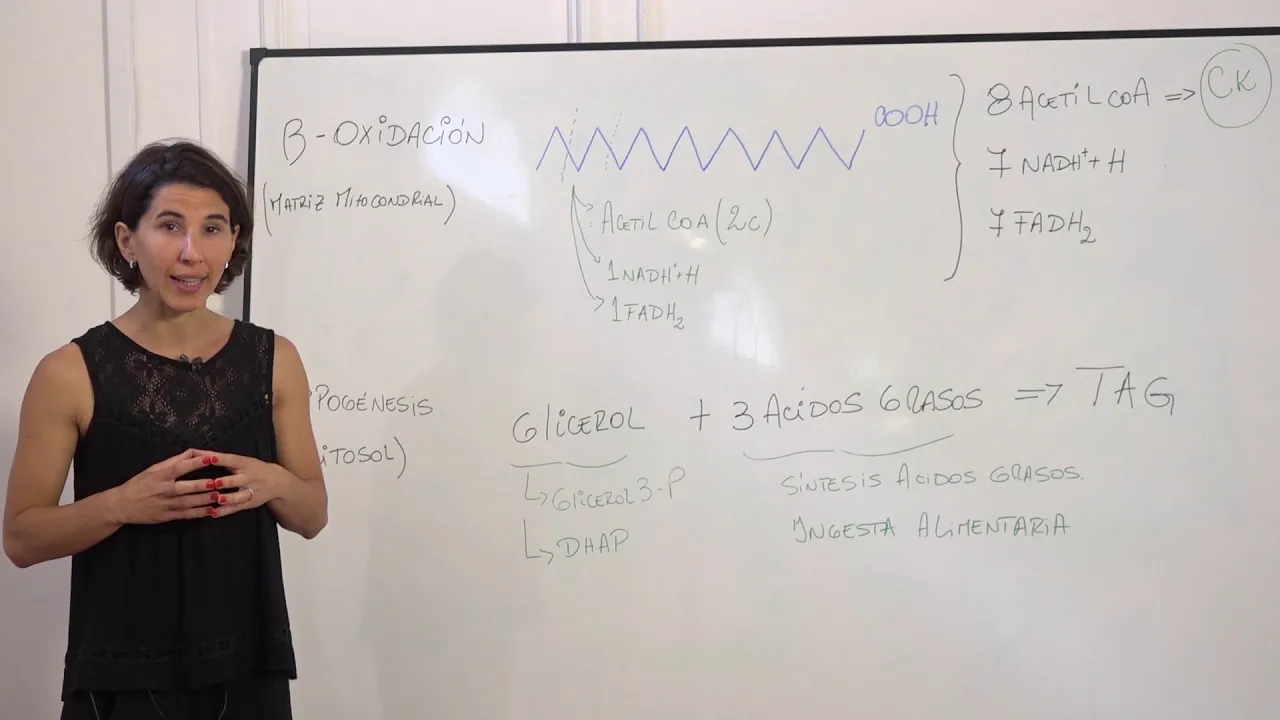 β-OXIDACIÓN
(MATRIZ MITOCONDRIAL)
COOH
ACETIL COA (2C)
1 NADH⁺+ H
1 FADH₂
8 ACETIL COA => CK
7 NADH⁺+ H
7 FADH₂
POGÉNESIS
ITOSOL)
GLICEROL + 3 ACIDOS GRASOS => TAG
GLICEROL 3-P
DHAP
SÍNTESIS ACIDOS GRASOS.
INGESTA ALIMENTARIA